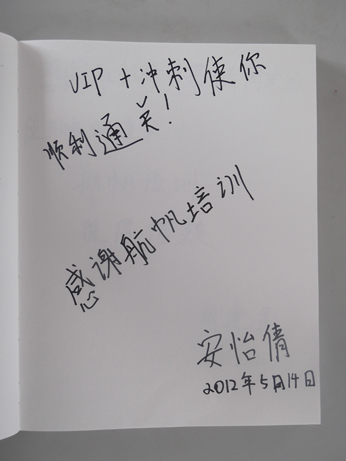 VIP+冲刺使你
顺利通关!
感谢航帆培训
安怡倩
2012年5月14日